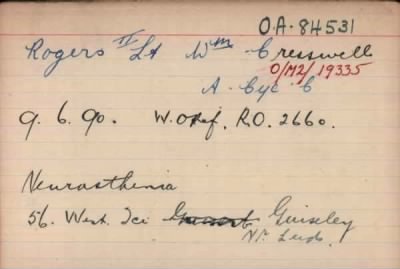 O.A. 84531
Rogers Lt Wm Cresswell
O/M2/19335
A. Cyc C
9. 6. 90. W.O. Ref. R.O. 2660.
Neurasthenia
56. West. Guiseley
Nr. Leeds.